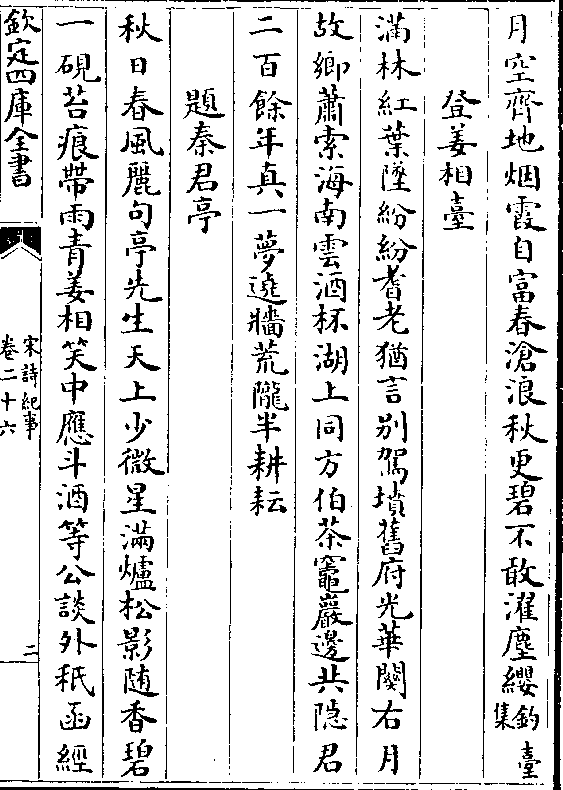 月空齊地烟霞自富春滄浪秋更碧不敢濯塵纓釣臺集
登姜相臺
滿林紅葉墜紛紛耆老猶言别駕墳舊府光華関右月
故鄉蕭索海南雲酒杯湖上同方伯茶竈巖邊共隠君
二百餘年真一夢遶牆荒隴半耕耘
題秦君亭
秋日春風麗句亭先生天上少微星滿爐松影随香碧
一硯苔痕帶雨青姜相笑中應斗酒等公談外秖函經
欽定四庫全書
宋詩紀事
卷二十六
二